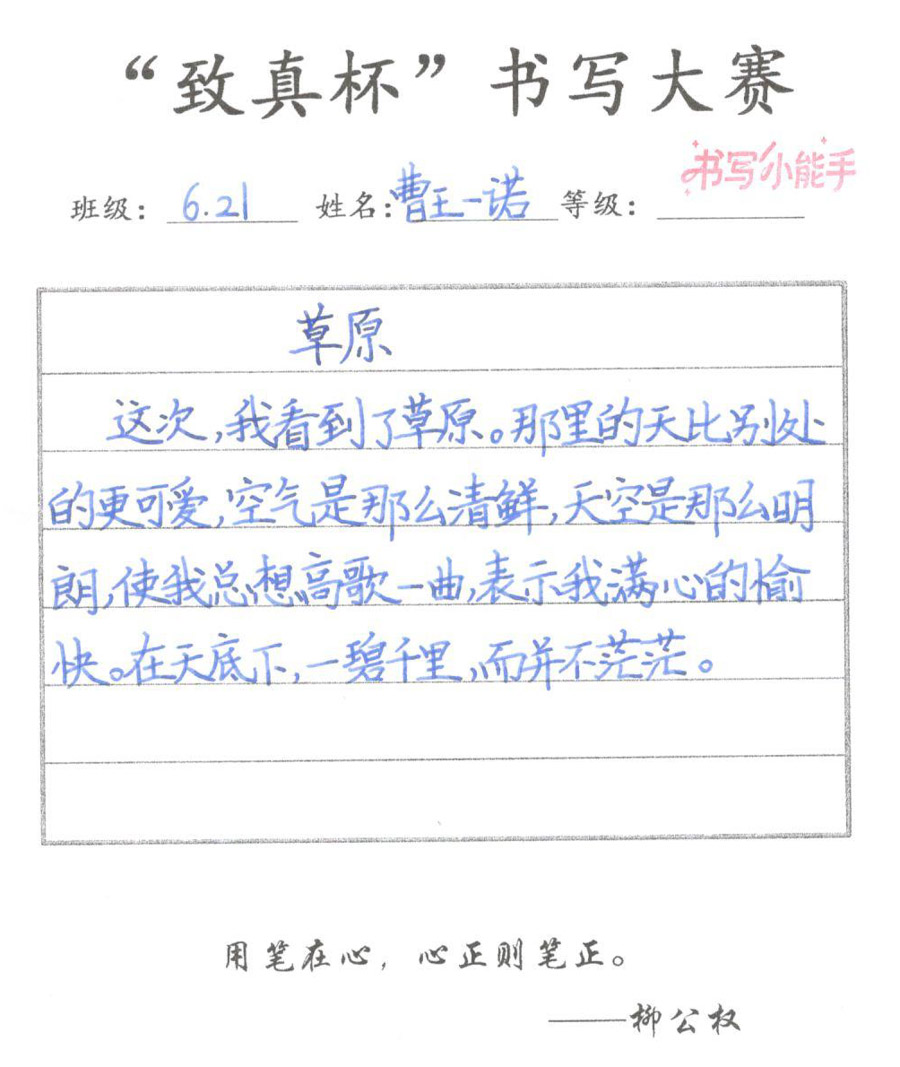 “致真杯”书写大赛
书写小能手
班级：6.21 姓名：曹王一诺 等级：
草原
这次，我看到了草原。那里的天比别处
的更可爱，空气是那么清鲜，天空是那么明
朗，使我总想高歌一曲，表示我满心的愉
快。在天底下，一碧千里，而并不茫茫。
用笔在心，心正则笔正。
——柳公权